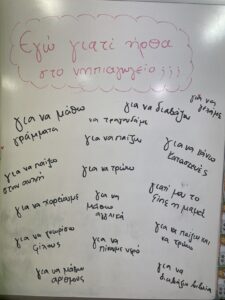 Εγώ γιατί ήρθα
στο νηπιαγωγείο ; ; ;
για να μάθω
γράμματα
για να διαβάζω
για να
για να τραγουδάμε
για να παίζω
για να κάνω
κατασκευές
για να παίξω
στην αυλή
για να τρώω
γιατί μου το
είπε η μαμά
για να χορεύουμε
για να
μάθω
αγγλικά
για να παίζω και
να τρώω
για να γνωρίσω
φίλους
για να
πίνουμε νερό
για να μάθω
αριθμούς
για να
διαβάζω